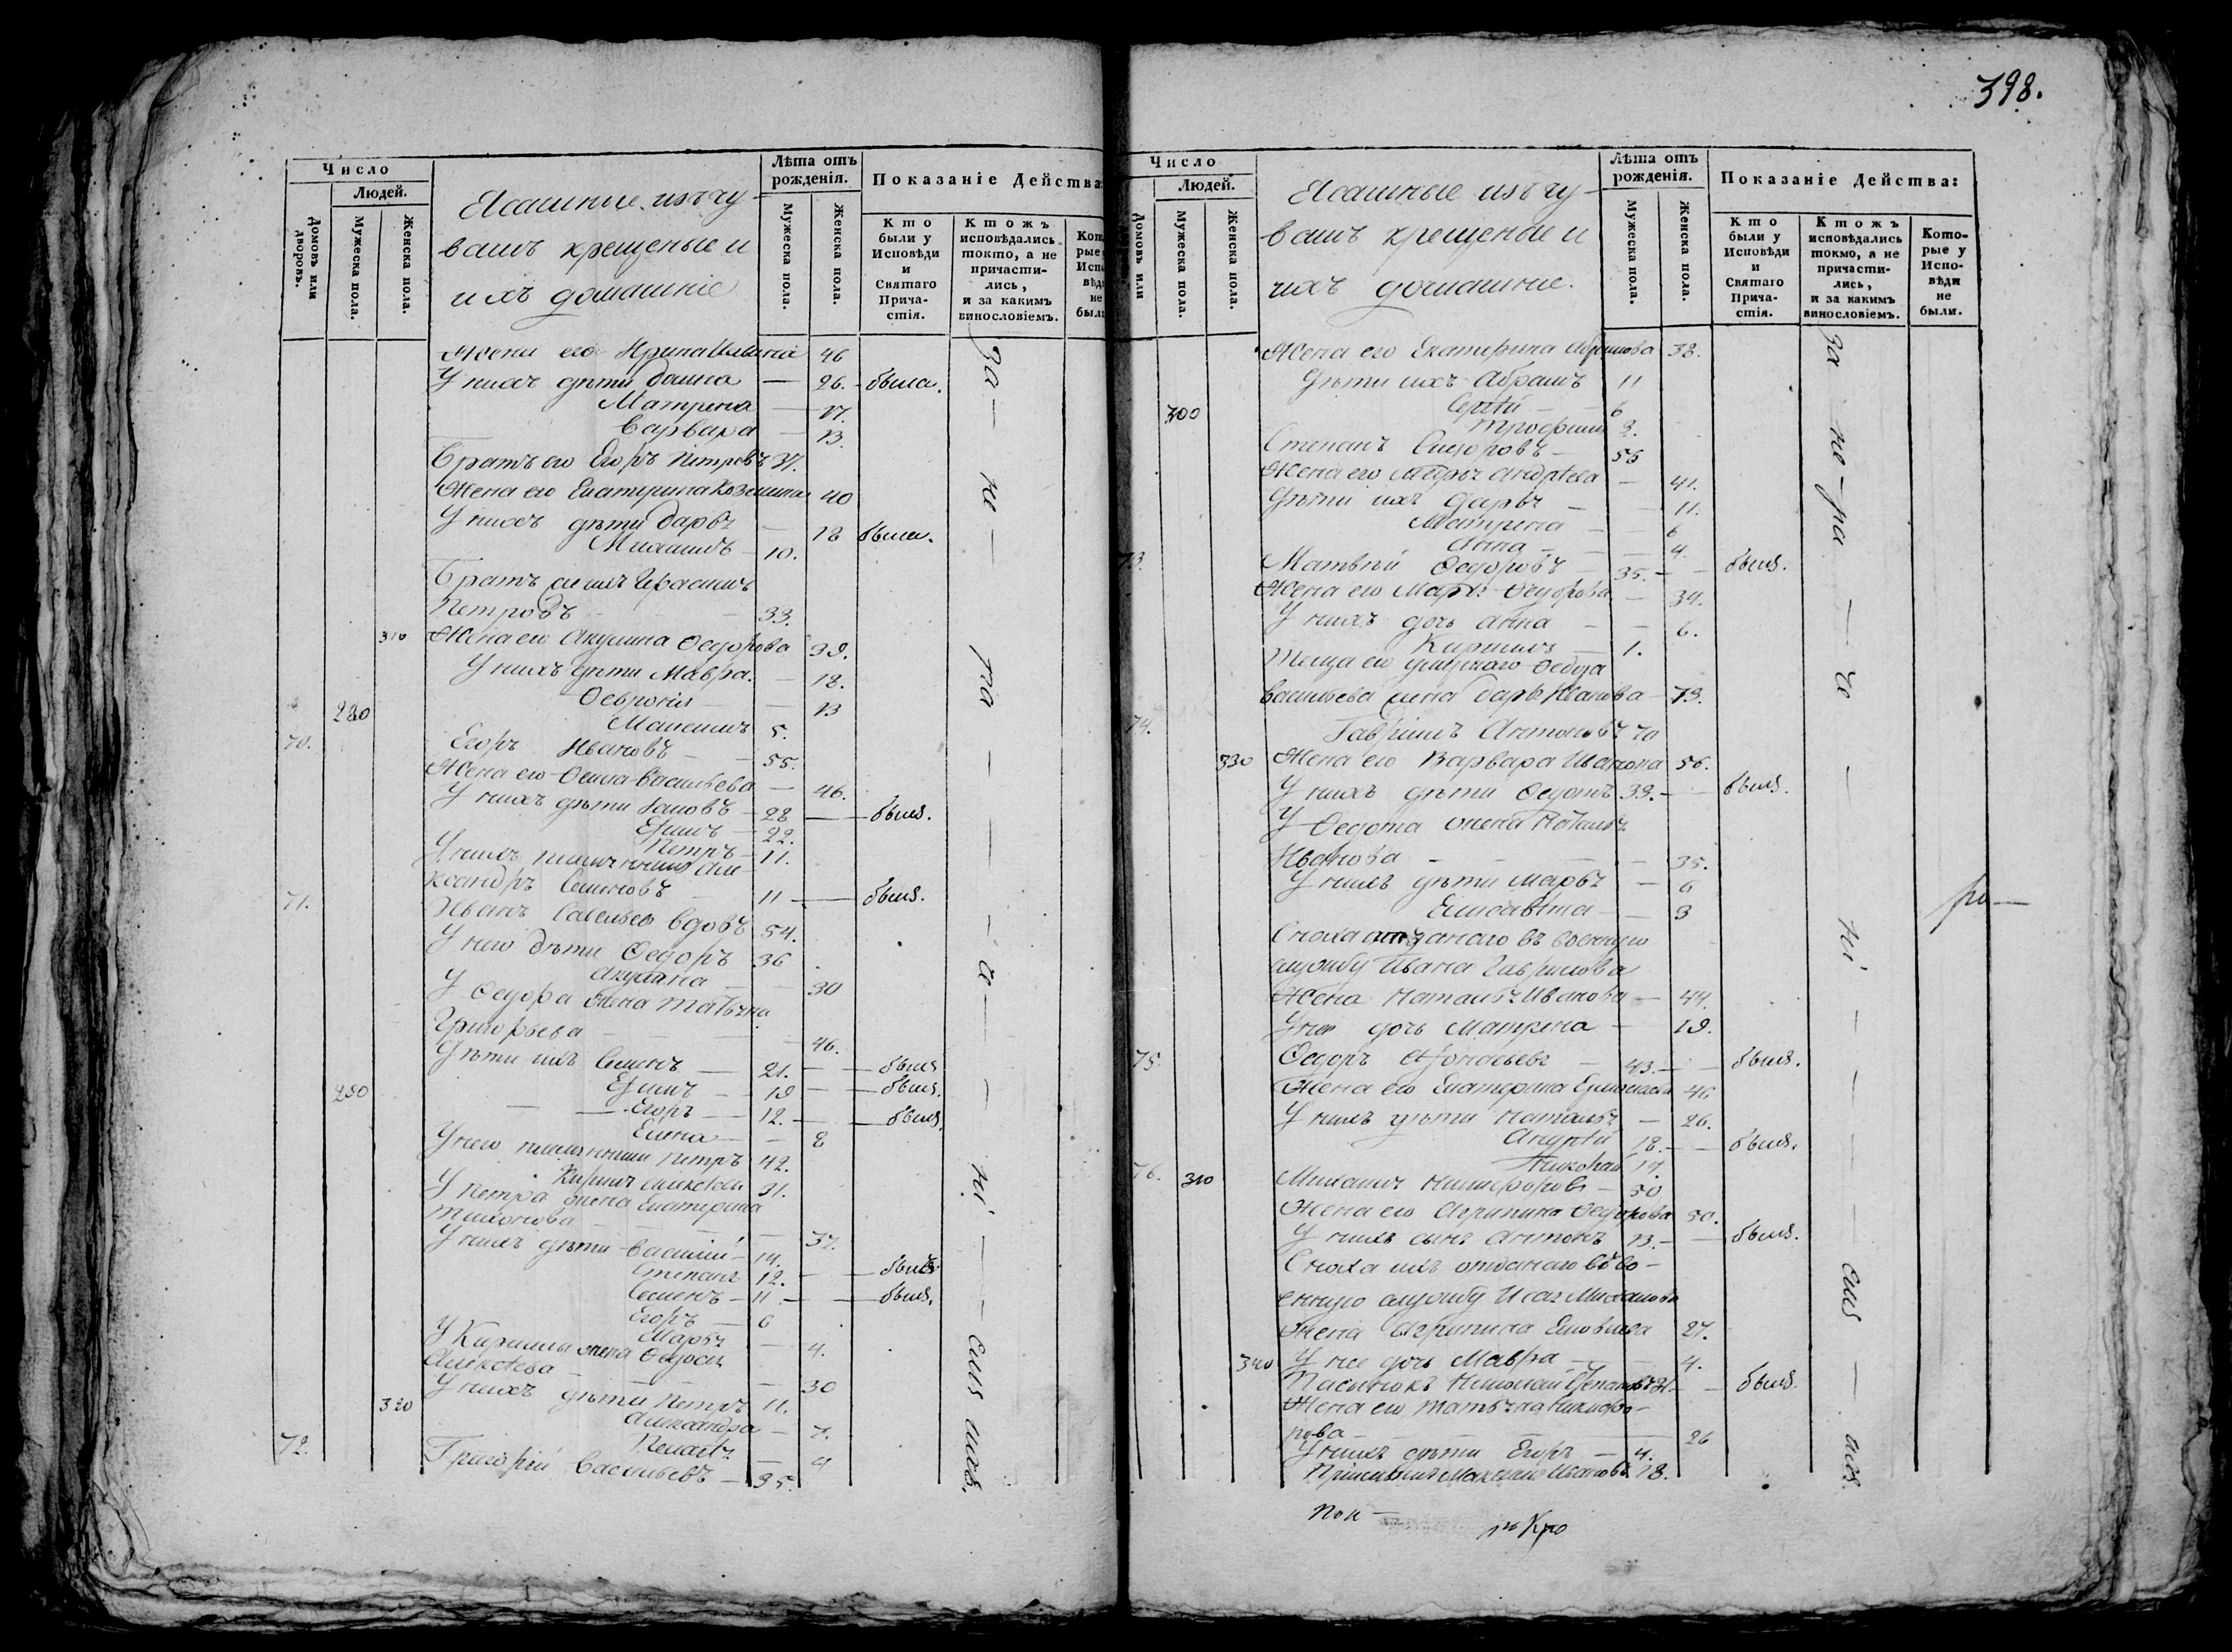 398.
Число
Людей.
Домовъ или дворовъ.
Мужеска пола.
Женска пола.
Ясашные изъ чу-
вашъ крещеные и
ихъ домашніе
Лѣта отъ рожденія.
Мужеска пола.
Женска пола.
Показаніе Действа:
Кто были у Исповѣди и Святаго Причастія.
Ктожъ исповѣдались токмо, а не причастились, и за какимъ винословіемъ.
Жена его Ирина 46
У нихъ дѣти 26. была.
Матрена 17.
Варвара 13.
Братъ его Егоръ Петровъ 37.
Жена его Екатерина 40
У нихъ дѣти Дарья 18 была.
Михаилъ 10.
Братъ Герасимъ
Петровъ 33.
310 Жена его Акулина Ѳедорова 39.
У нихъ дѣти Мавра. 18.
13
280 5.
70. Егоръ Ивановъ 55.
Жена его Васильева 46.
У нихъ дѣти 28 былъ.
Ефимъ 22.
Петръ 11.
У нихъ племянникъ Але-
ксандръ Семеновъ 11 былъ.
71. Иванъ Савельевъ вдовъ 54.
У него дѣти Ѳедоръ 36
Акулина 30
У Ѳедора жена Татьяна
Григорьева 46.
Дѣти ихъ Семенъ 21. былъ
Ефимъ 19 былъ.
290 Егоръ 12. былъ.
Елена 8
У него племянники Петръ 42.
Кирилъ Алексѣевъ 31.
У Петра жена Екатерина
Тихонова 37.
У нихъ дѣти Василій 14.
Степанъ 12. былъ
Семенъ 11 былъ.
Егоръ 6
Марья 4.
У Кирилы жена Ѳедосья
Алексѣева 30
У нихъ дѣти Петръ 11.
320 Александра 7.
Пелагѣя 4
72. Григорій Васильевъ 35.
за не ра че ні емъ ихъ.
Число
Людей.
Домовъ или
Мужеска пола.
Женска пола.
Ясашные изъ чу-
вашъ крещеные и
ихъ домашніе.
Лѣта отъ рожденія.
Мужеска пола.
Женска пола.
Показаніе Действа:
Кто были у Исповѣди и Святаго Причастія.
Ктожъ исповѣдались токмо, а не причастились, и за какимъ винословіемъ.
Которые у Исповѣди не были.
Жена его Екатерина Абрамова 38.
Дѣти ихъ Абрамъ 11
300 Сергѣй 6
Трофимъ 3.
Степанъ 55
Жена его Марья Андрѣева 41.
Дѣти ихъ Дарья 11.
Матрена 6
Анна 4.
73. Матвѣй Ѳедоровъ 35. былъ.
Жена его Марья Ѳедорова 34.
У нихъ дочь Анна 6.
Кирилъ 1.
Теща его умершаго
Васильева жена Дарья Иванова 73.
74. Гаврилъ Антоновъ 70
330 Жена его Варвара Иванова 56.
У нихъ дѣти Ѳедотъ 33. былъ.
У Ѳедота жена Наталья
Иванова 35.
У нихъ дѣти Марья 6
Елисавета 3
Сноха отданаго въ военную
службу Ивана Гаврилова
Жена Наталья Иванова 44.
У нее дочь Матрена 19.
75. Ѳедоръ Афонасьевъ 43. былъ.
Жена его Екатерина 46
У нихъ дѣти Наталья 26.
Андрѣй 18. былъ.
Николай 14.
76. 310 Михаилъ Никифоровъ 50
Жена его Агрипина Ѳедорова 50.
У нихъ сынъ Антонъ 13. былъ.
Сноха ихъ отданаго въ во-
енную службу Михайлова
Жена Агрипина 27.
340 У нее дочь Мавра 4.
Пасынокъ Николай Степановъ былъ.
Жена его Татьяна Никифо-
рова 26
У нихъ дѣти Егоръ 4.
Максимъ Ивановъ 18.
за не ра че ні емъ ихъ.